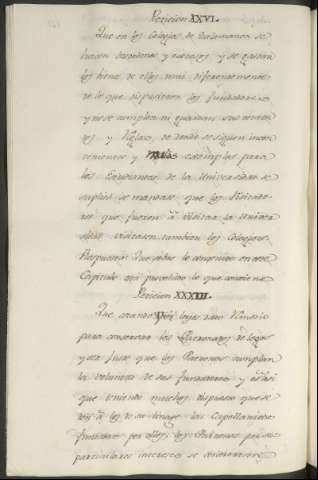 Peticion XXVI.
Que en los Colegios de Salamanca se
hacen desordenes y excesos y se gastan
los bienes de ellos mui diferentemente
de lo que dispusieron los fundadores
y no se cumplen ni guardan sus constitucio
nes y Reglas, de donde se siguen incon
venientes y malos exemplos para
los Estudiantes de la Universidad se
suplica se mande que los Visitado
res que fueren á visitar la Univer
sidad visitasen tambien los Colegios
Respuesta: Que sobre lo contenido en este
Capitulo está proveido lo que conviene
Peticion XXXIII.
Que quando los legos
para conservar los Patronazgos de legos
y sea justo que los Patronos cumplan
la voluntad de sus fundadores y es asi
que teniendo muchos dispuesto que se
den á los de su linage las Capellanias
fundadas por ellos, los Patronos por sus
particulares intereses se